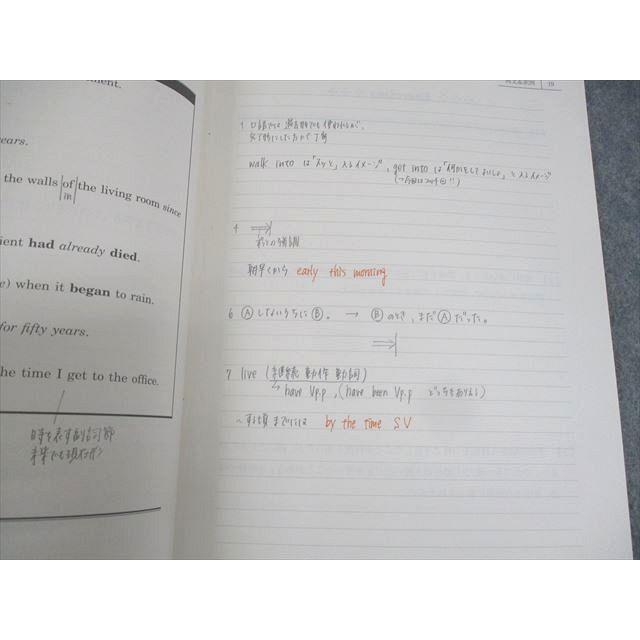 ment.
ears.
the walls of the living room since
in
ient had already died.
e) when it began to rain.
for fifty years.
he time I get to the office.
時を表す副詞節
未来でも現在形
19
1 口語では過去時でも使われるが、
完了形にした方が丁寧
walk into は「スッと」入るイメージ, get into は「何かをして」と入るイメージ
4
朝早くから early this morning
6 Ⓐしないうちに Ⓑ。 → Ⓑのとき、まだⒶだった。
7 live (継続動作動詞)
have Vp.p , (have been Vp.p どっちもありえる)
〜する頃までには by the time SV